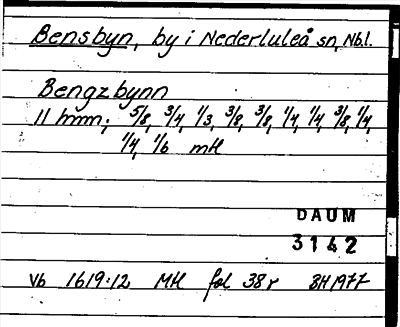 Bensbyn, by i Nederluleå sn, Nb.l.
Bengzbynn
11 hmn; 5/8, 3/4, 1/3, 3/8, 3/8, 1/4, 1/4, 3/8, 1/4,
1/4, 1/6 mH
DAUM
3142
Vb 1619:12 MH fol 38r BH 1977